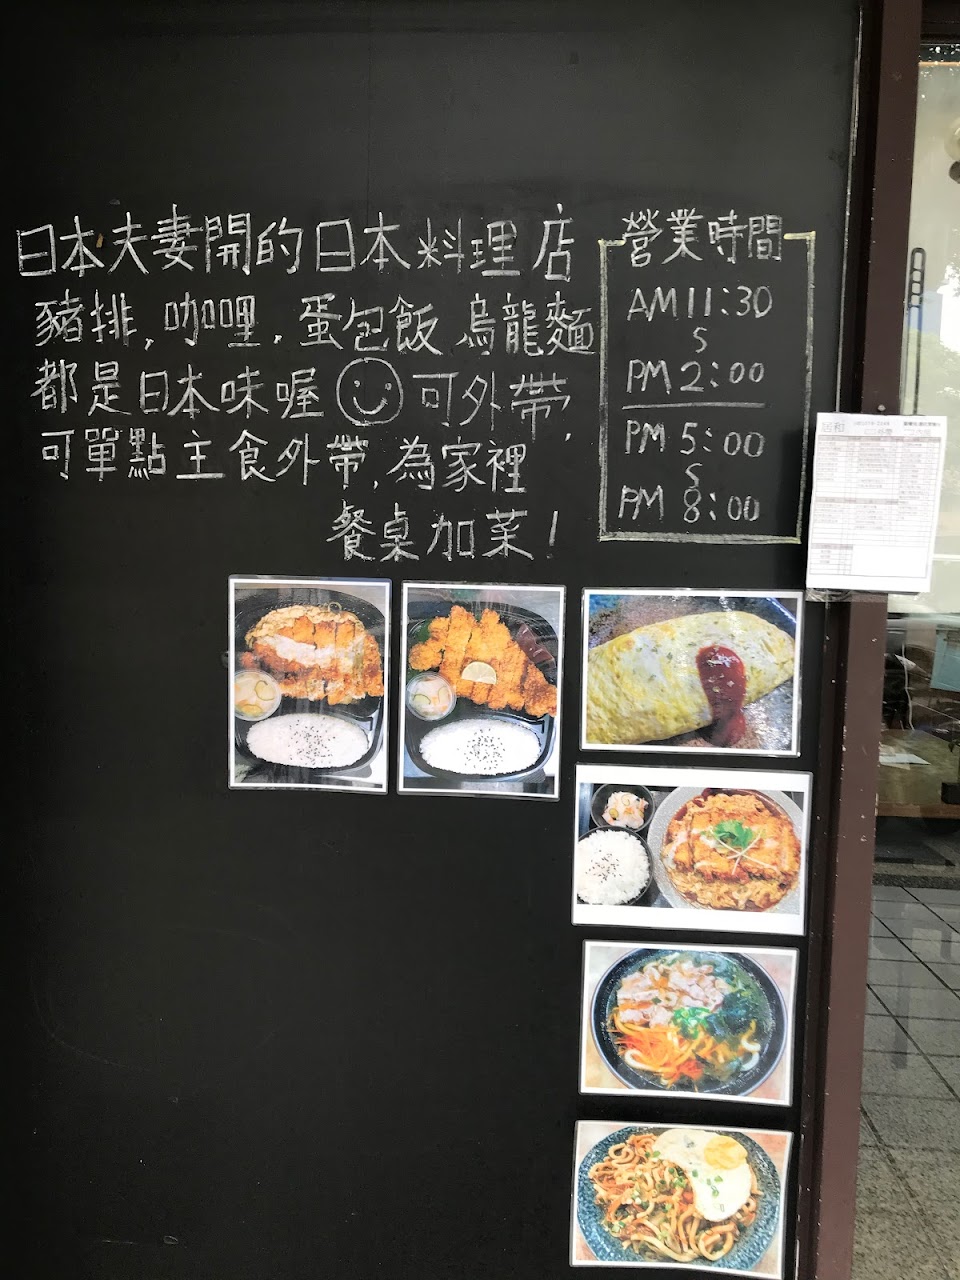 日本夫妻開的日本料理店
豬排,咖哩.蛋包飯 烏龍麵
都是日本味喔 可外帶,
可單點主食外帶,為家裡
餐桌加菜!
營業時間
AM11:30
S
PM 2:00
PM 5:00
S
PM 8:00